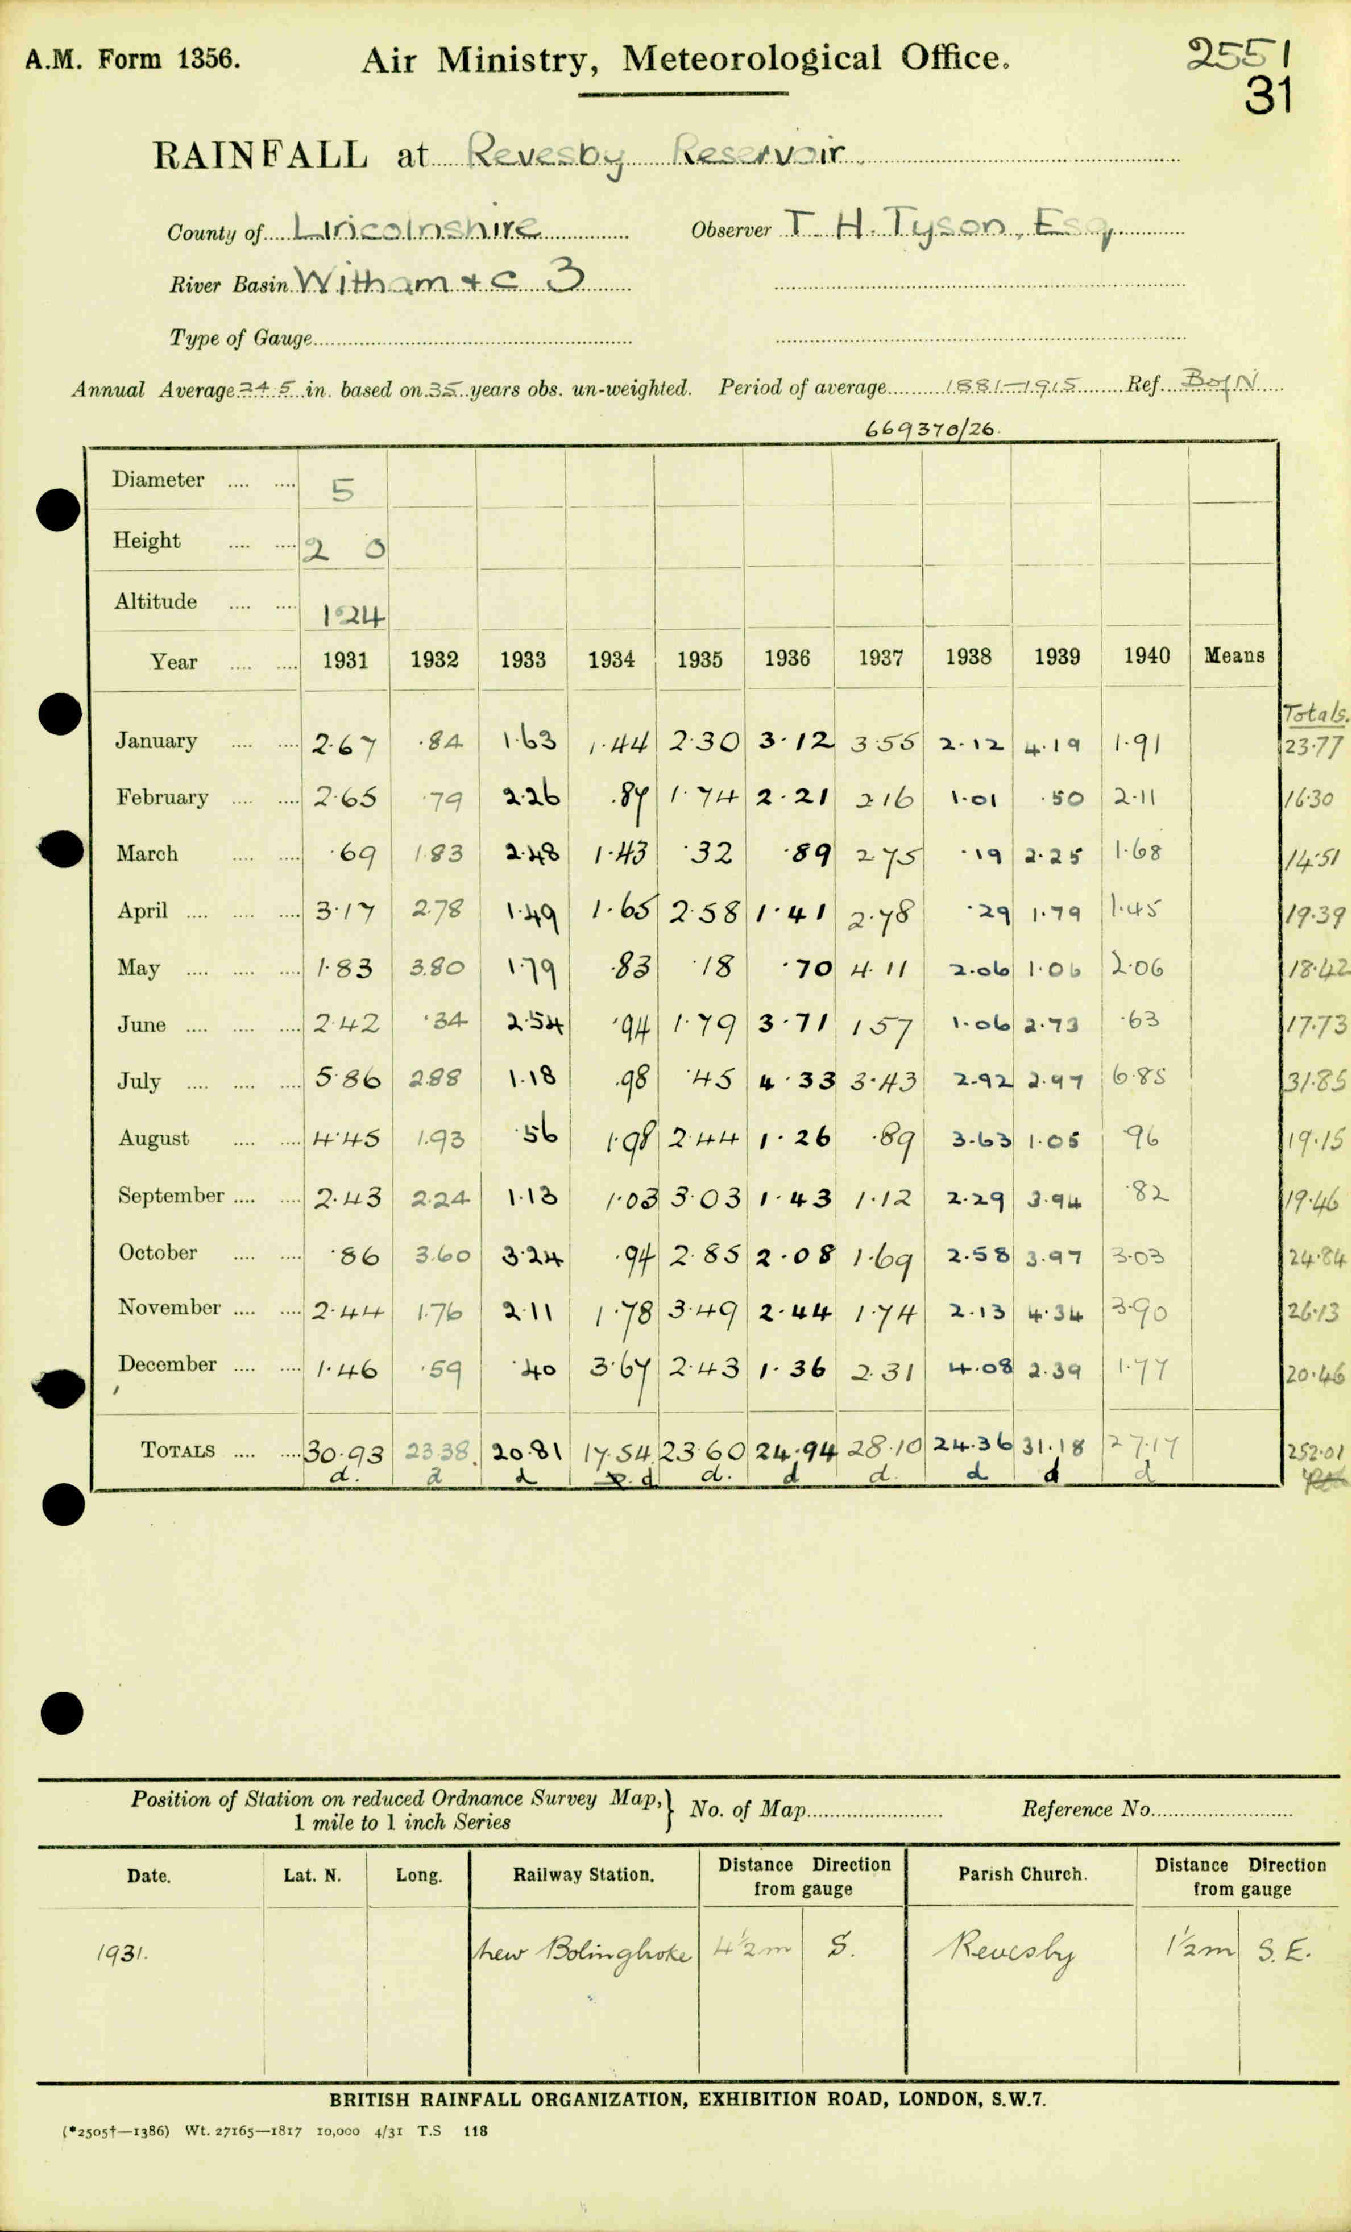 A.M. Form 1356.
Air Ministry, Meteorological Office.
2551
31
RAINFALL at Revesby Reservoir.
County of Lincolnshire Observer T. H. Tyson, Esq
River Basin Witham + c 3
Type of Gauge
Annual Average 24.5 in. based on 35 years obs. un-weighted. Period of average 1881–1915 Ref. B of N
669370/26.
Diameter .... .... 5
Height .... .... 2 0
Altitude .... .... 124
Year .... .... 1931 1932 1933 1934 1935 1936 1937 1938 1939 1940 Means
Totals.
January .... .... 2.67 .84 1.63 1.44 2.30 3.12 3.55 2.12 4.19 1.91 23.77
February .... .... 2.65 .79 2.26 .87 1.74 2.21 2.16 1.01 .50 2.11 16.30
March .... .... .69 1.83 2.48 1.43 .32 .89 2.75 .19 2.25 1.68 14.51
April .... .... .... 3.17 2.78 1.49 1.65 2.58 1.41 2.78 .29 1.79 1.45 19.39
May .... .... .... 1.83 3.80 1.79 .83 .18 .70 4.11 2.06 1.06 2.06 18.42
June .... .... .... 2.42 .34 2.54 .94 1.79 3.71 1.57 1.06 2.73 .63 17.73
July .... .... .... 5.86 2.88 1.18 .98 .45 4.33 3.43 2.92 2.97 6.85 31.85
August .... .... 4.45 1.93 .56 1.98 2.44 1.26 .89 3.63 1.05 .96 19.15
September .... .... 2.43 2.24 1.13 1.03 3.03 1.43 1.12 2.29 3.94 .82 19.46
October .... .... .86 3.60 3.24 .94 2.85 2.08 1.69 2.58 3.97 3.03 24.84
November .... .... 2.44 1.76 2.11 1.78 3.49 2.44 1.74 2.13 4.34 3.90 26.13
December .... .... 1.46 .59 .40 3.67 2.43 1.36 2.31 4.08 2.39 1.77 20.46
TOTALS .... .... 30.93 23.38 20.81 17.54 23.60 24.94 28.10 24.36 31.18 27.17 252.01
d. d d d d. d d. d d d
Position of Station on reduced Ordnance Survey Map, } No. of Map Reference No.
1 mile to 1 inch Series
Date. Lat. N. Long. Railway Station. Distance Direction from gauge Parish Church. Distance Direction from gauge
1931. New Bolingbroke 4½m S. Revesby 1½m S.E.
BRITISH RAINFALL ORGANIZATION, EXHIBITION ROAD, LONDON, S.W.7.
(*2505†—1386) Wt. 27165—1817 10,000 4/31 T.S 118